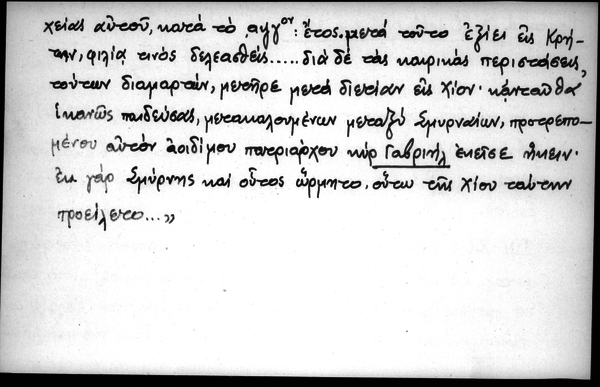 χείας αὐτοῦ, κατά τό ͵αψγ^ον: ἔτος. μετά τοῦτο ἐξίει εἰς Κρή-
την, φιλίᾳ τινός δελεασθείς..... διά δέ τάς καιρικάς περιστάσεις,
τούτων διαμαρτών, μετῆρε μετά διετίαν εἰς Χίον· κἀνταῦθα
ἱκανῶς παιδεύσας, μετακαλουμένων μεταξύ Σμυρναίων, προτρεπο-
μένου αὐτόν ἀοιδίμου πατριάρχου κύρ Γαβριήλ ἐκεῖσε ἥκειν·
ἐκ γάρ Σμύρνης καί οὗτος ὥρμητο, οὕτω τῆς Χίου ταύτην
προείλετο...»